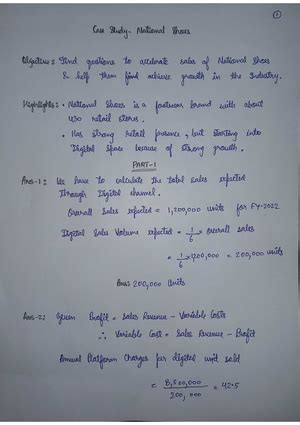 1
Case Study- National Shoes
Objective: Find questions to accelerate sales of National Shoes
& help them find achieve growth in the Industry.
Highlights: • National Shoes is a footwear brand with about
450 retail stores.
• Has strong retail presence, but starting into
Digital space because of strong growth.
PART-1
Ans-1: We have to calculate the total sales expected
through Digital channel.
Overall Sales expected = 1,200,000 units for FY-2022
Digital Sales Volume expected = 1/6 × overall sales
= 1/6 × 1200,000 = 200,000 units
Ans: 200,000 Units
Ans-2: Given Profit = Sales Revenue - Variable Costs
∴ Variable Cost = Sales Revenue - Profit
Annual Platform Charges per digital unit sold
= 8,500,000 / 200,000 = 42.5